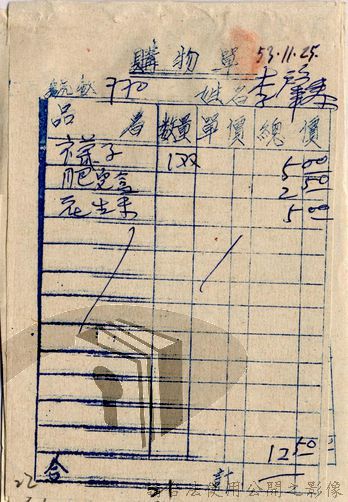 購物單 53.11.25.
號數 770 姓名 李
品名 數量 單價 總價
襪子 1双 5 00
肥皂盒 2 50
花生米 5 00
合計 12 50
合法使用公開之影像